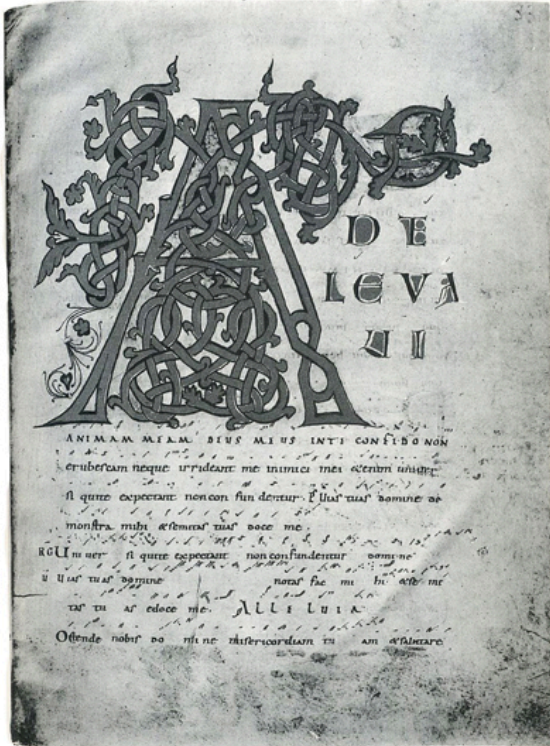 A
D TE
LEVA
VI
ANIMAM MEAM. DEUS MEUS INTE CONFIDO NON
erubescam neque irrideant me inimici mei &enim uniuer
si qui te expectant non con fun dentur. P Uias tuas domine de
monstra mihi &semitas tuas doce me.
RG Uni uer si qui te expectant non confundentur domine
U Uias tuas domine notas fac mi hi &se mi
tas tu as edoce me. ALLELUIA
Ostende nobis do mi ne misericordiam tu am &salutare